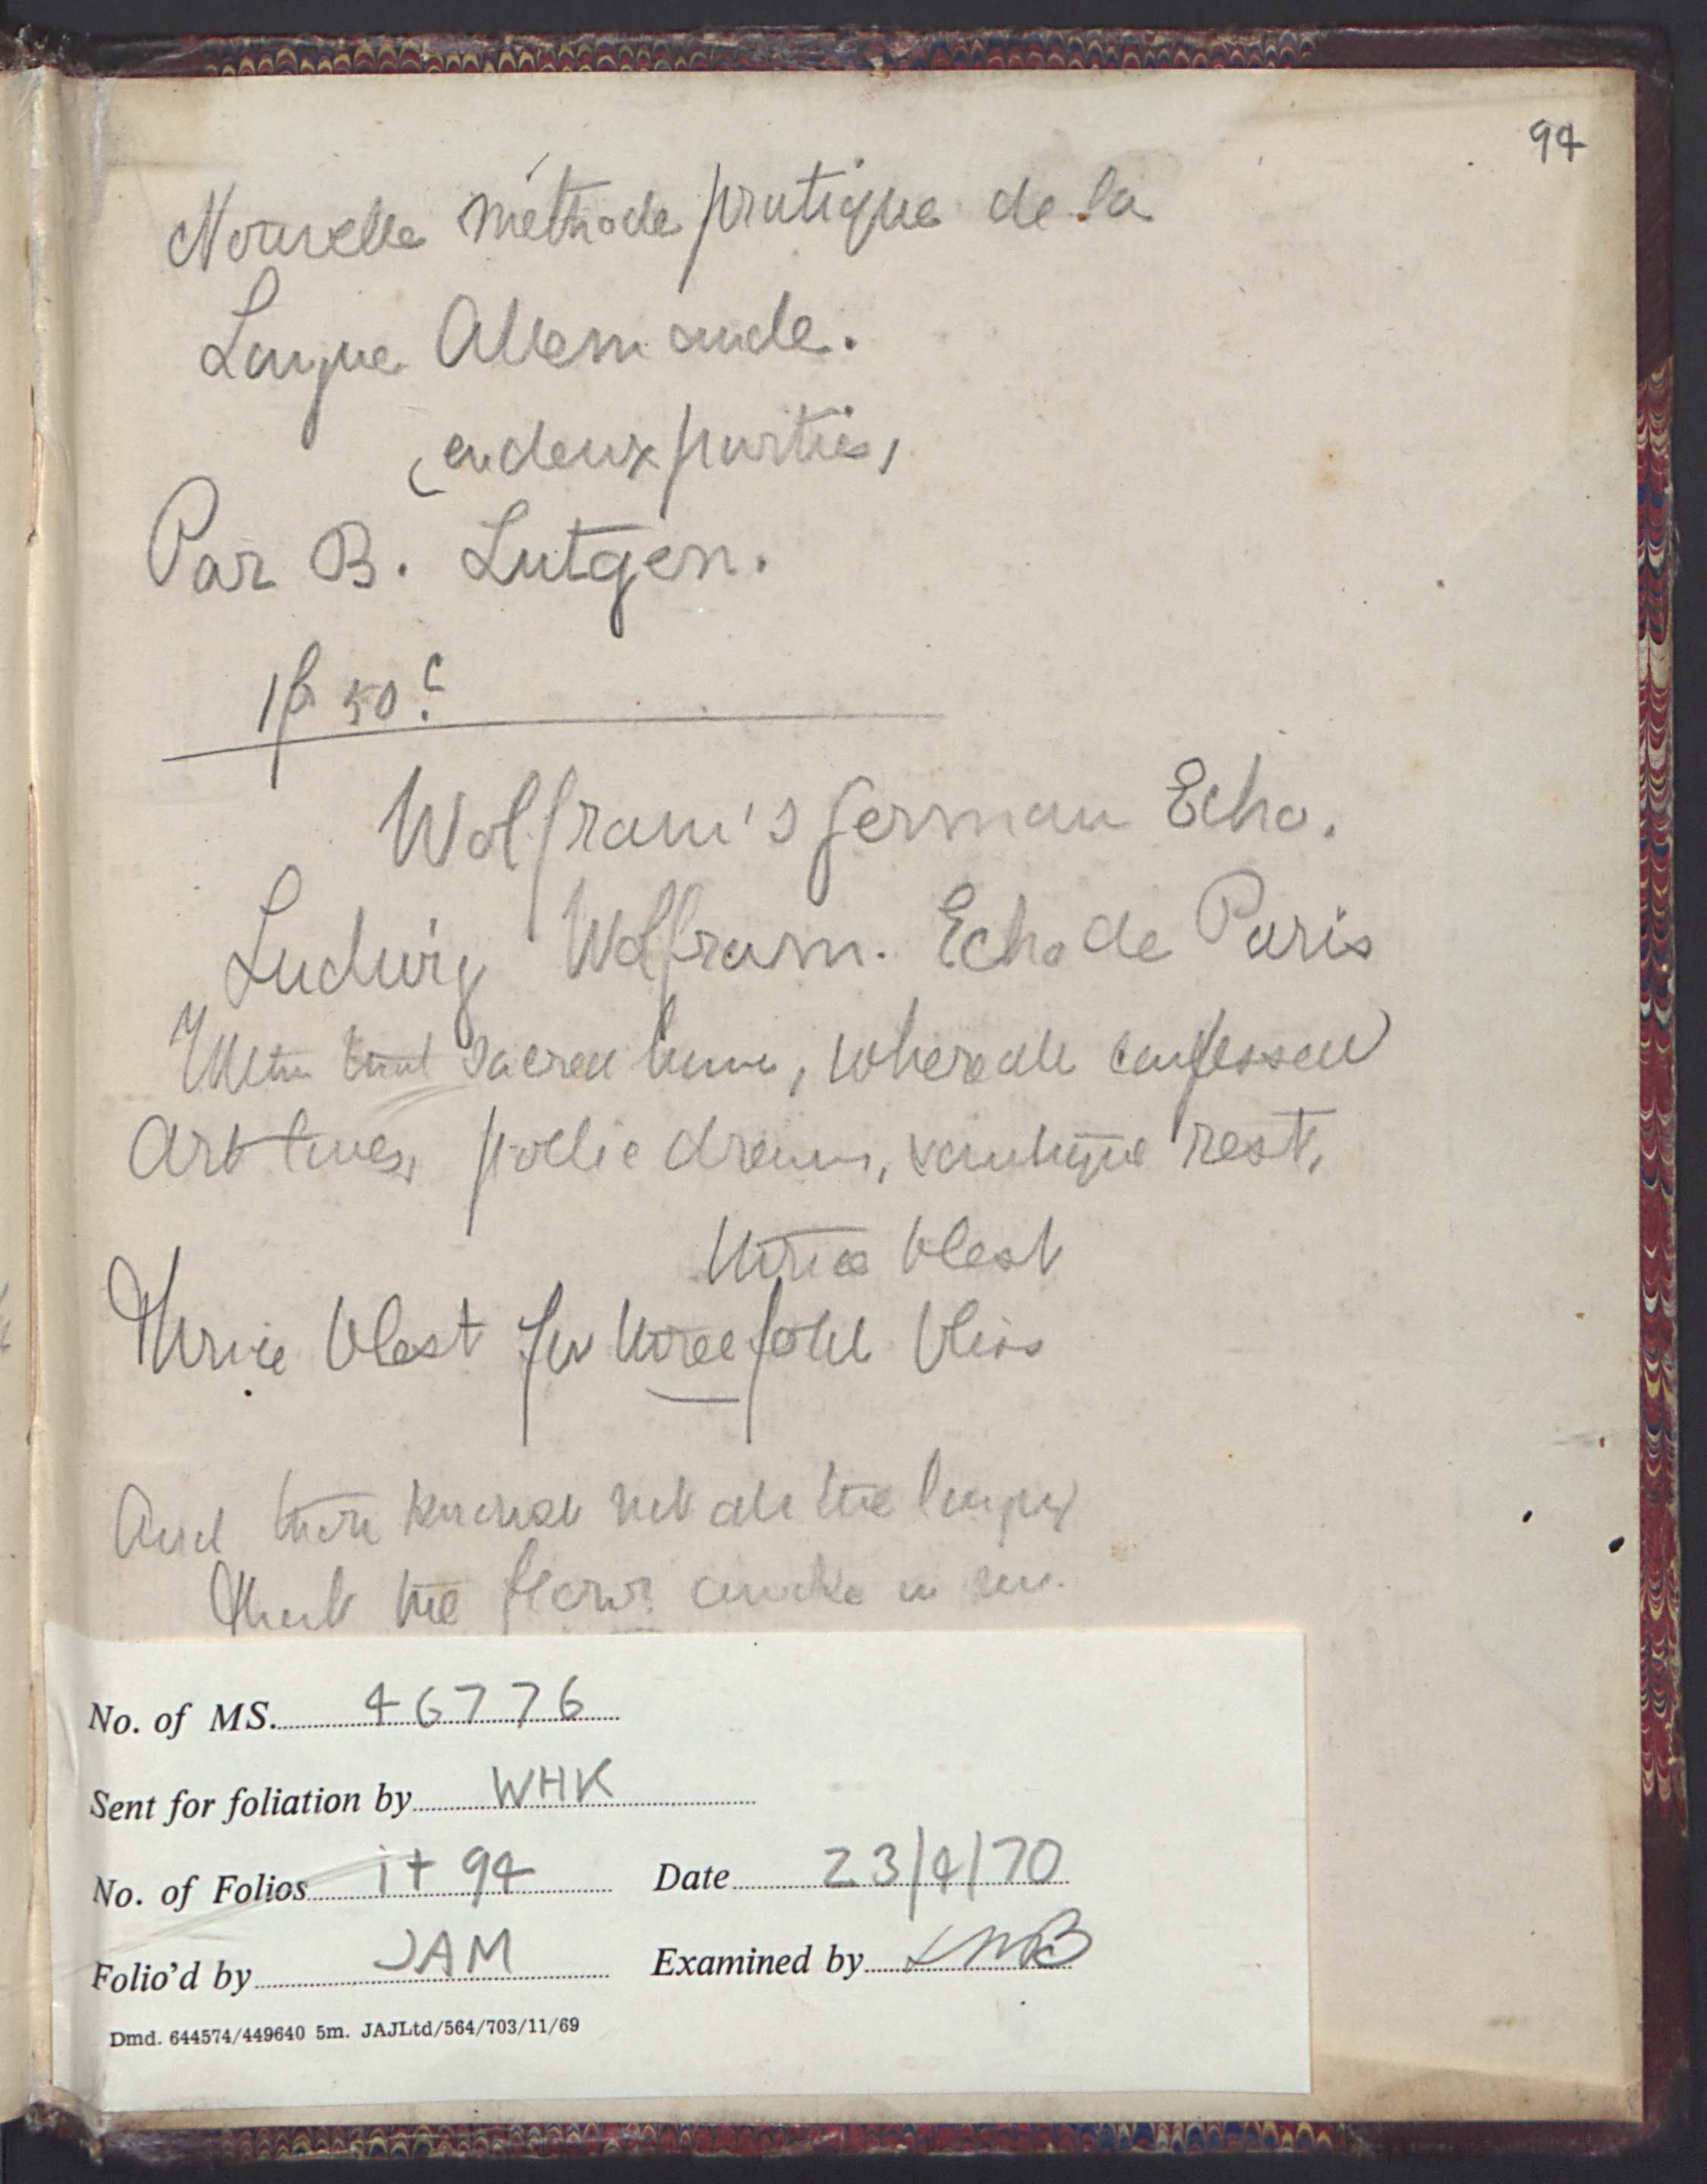 94
Nouvelle méthode pratique de la
Langue Allemande.
(en deux parties,
Par B. Lutgen.
1f 50c.
Wolfram's German Echo.
Ludwig Wolfram. Echo de Paris
sacred home, where all confessed
Art lives, poetic dreams, rest,
thrice blest
Thrice blest for threefold bliss
And thou knowest not all the
That the awake in
No. of MS. 46776
Sent for foliation by WHK
No. of Folios i + 94 Date 23/4/70
Folio'd by JAM Examined by
Dmd. 644574/449640 5m. JAJLtd/564/703/11/69